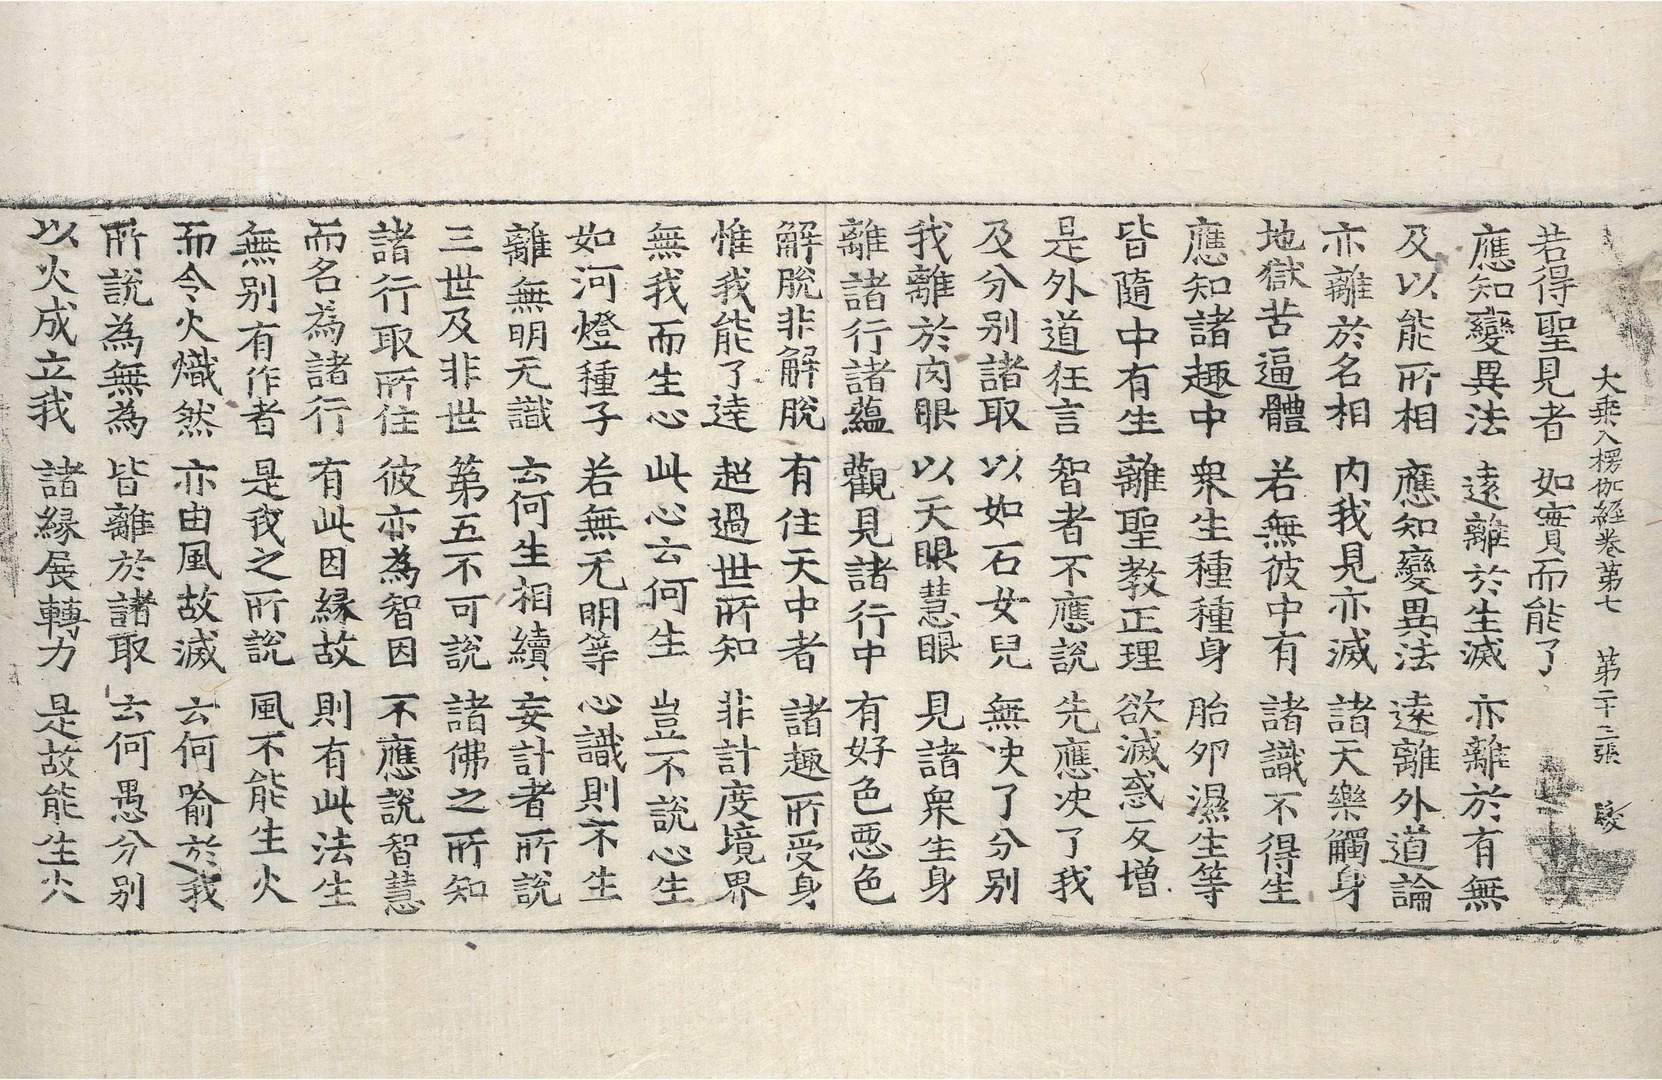 大乘入楞伽經卷第七　第二十二張
若得聖見者　如實而能了
應知變異法　遠離於生滅　亦離於有無
及以能所相　應知變異法　遠離外道論
亦離於名相　內我見亦滅　諸天樂觸身
地獄苦逼體　若無彼中有　諸識不得生
應知諸趣中　衆生種種身　胎卵濕生等
皆隨中有生　離聖教正理　欲滅惑反增
是外道狂言　智者不應說　先應决了我
及分別諸取　以如石女兒　無决了分別
我離於肉眼　以天眼慧眼　見諸衆生身
離諸行諸蘊　觀見諸行中　有好色惡色
解脫非解脫　有住天中者　諸趣所受身
惟我能了達　超過世所知　非計度境界
無我而生心　此心云何生　豈不說心生
如河燈種子　若無无明等　心識則不生
離無明无識　云何生相續　妄計者所說
三世及非世　第五不可說　諸佛之所知
諸行取所住　彼亦為智因　不應說智慧
而名為諸行　有此因緣故　則有此法生
無別有作者　是我之所說　風不能生火
而令火熾然　亦由風故滅　云何喻於我
所說為無為　皆離於諸取　云何愚分別
以火成立我　諸緣展轉力　是故能生火